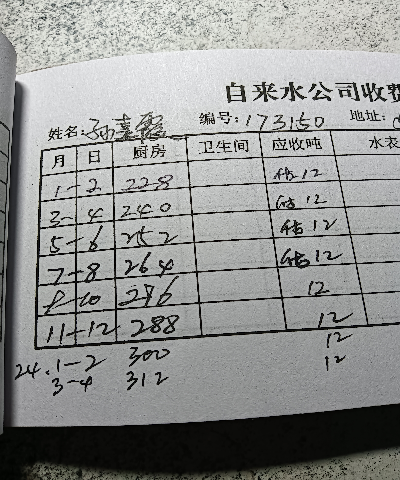 自来水公司收费
姓名: 孙 编号: 173150 地址:
月 日 厨房 卫生间 应收吨 水表
1-2 228 估12
3-4 240 估12
5-6 252 估12
7-8 264 估12
9-10 276 12
11-12 288 12
24.1-2 300 12
3-4 312 12